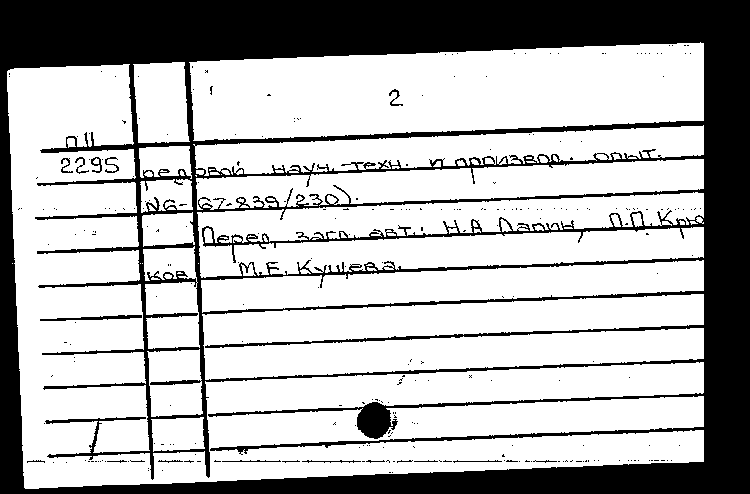 2
П11
2295 редовой науч.-техн. и производ. опыт.
№6-67-839/230).
Перед. загл. авт.: Н.А Лапин, П.П. Крю
ков, М.Е. Кущева.